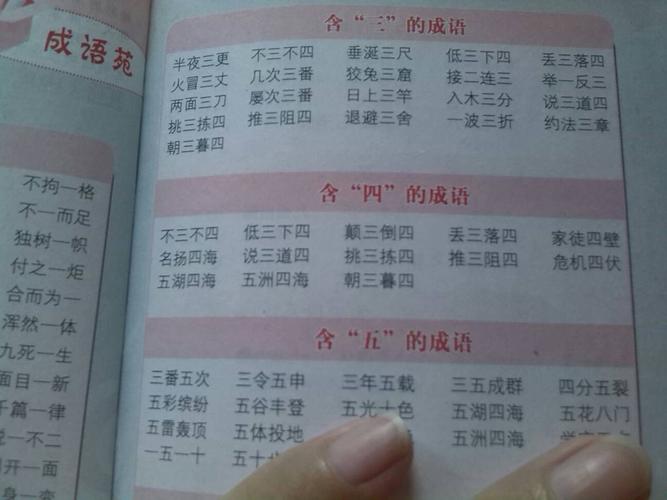 成语苑
不拘一格
不一而足
独树一帜
付之一炬
合而为一
浑然一体
九死一生
面目一新
千篇一律
一不二
开一面
身一变
含“三”的成语
半夜三更 不三不四 垂涎三尺 低三下四 丢三落四
火冒三丈 几次三番 狡兔三窟 接二连三 举一反三
两面三刀 屡次三番 日上三竿 入木三分 说三道四
挑三拣四 推三阻四 退避三舍 一波三折 约法三章
朝三暮四
含“四”的成语
不三不四 低三下四 颠三倒四 丢三落四 家徒四壁
名扬四海 说三道四 挑三拣四 推三阻四 危机四伏
五湖四海 五洲四海 朝三暮四
含“五”的成语
三番五次 三令五申 三年五载 三五成群 四分五裂
五彩缤纷 五谷丰登 五光十色 五湖四海 五花八门
五雷轰顶 五体投地 五洲四海
一五一十 五十